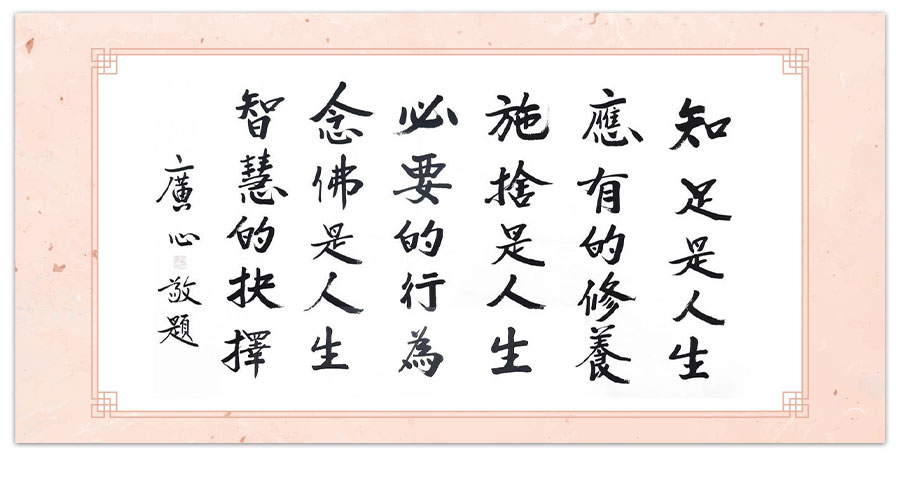 知足是人生
應有的修養
施捨是人生
必要的行為
念佛是人生
智慧的抉擇
廣心敬題